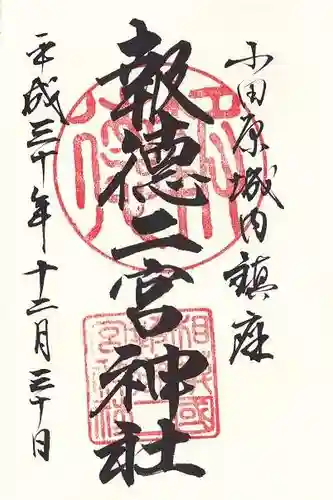 小田原城内鎮座
報徳二宮神社
平成三十年十二月三十日